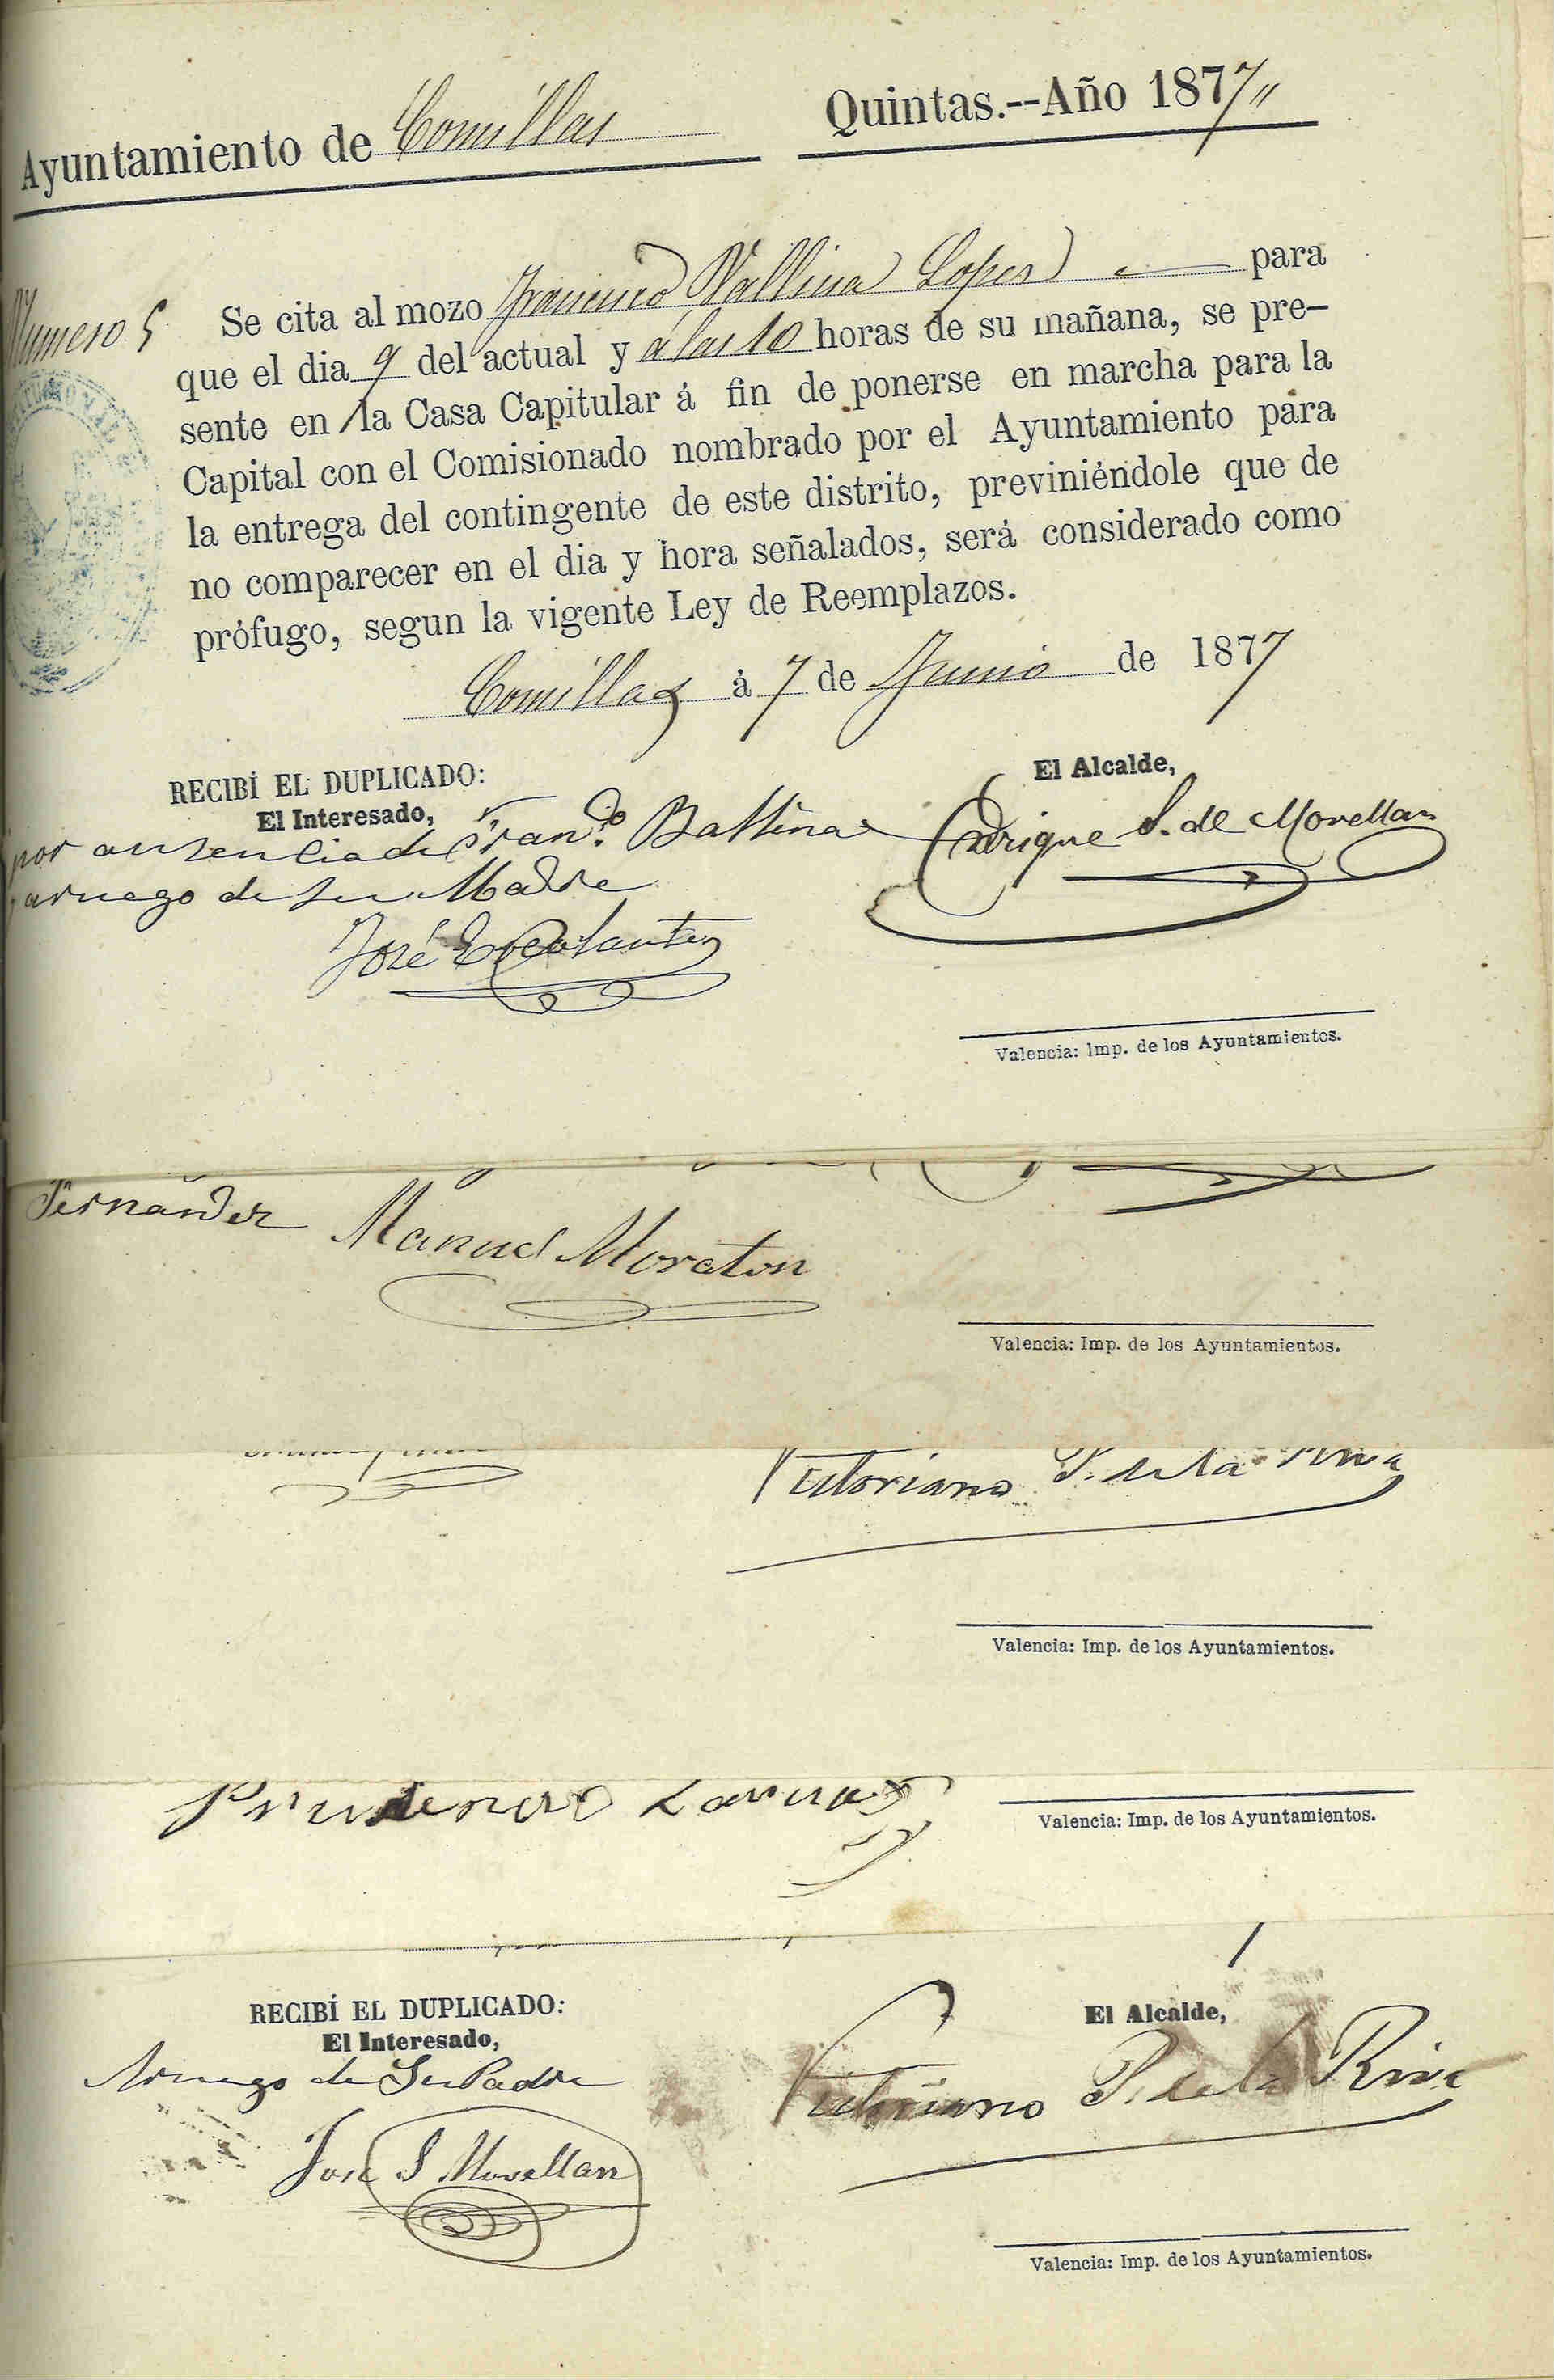 Ayuntamiento de Comillas Quintas.--Año 1877
Numero 5 Se cita al mozo Francisco Vallina Lopez para
que el dia 9 del actual y á las 10 horas de su mañana, se pre-
sente en la Casa Capitular á fin de ponerse en marcha para la
Capital con el Comisionado nombrado por el Ayuntamiento para
la entrega del contingente de este distrito, previniéndole que de
no comparecer en el dia y hora señalados, será considerado como
prófugo, segun la vigente Ley de Reemplazos.
Comillas á 7 de Junio de 1877
RECIBÍ EL DUPLICADO:
El Interesado,
por ausencia de Fran.co Ballina
aruego de su Madre
José
El Alcalde,
Enrique S. de Movellan
Valencia: Imp. de los Ayuntamientos.
Fernandez Manuel Moraton
Valencia: Imp. de los Ayuntamientos.
Victoriano P. de la Riva
Valencia: Imp. de los Ayuntamientos.
Prudencio
Valencia: Imp. de los Ayuntamientos.
RECIBÍ EL DUPLICADO:
El Interesado,
Aruego de Su Padre
Jose S Movellan
El Alcalde,
Victoriano P. de la Riva
Valencia: Imp. de los Ayuntamientos.